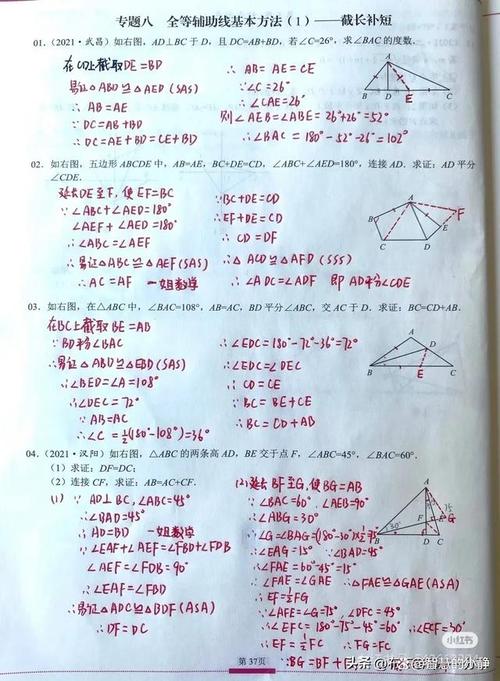 专题八 全等辅助线基本方法（1）——截长补短
01.（2021·武昌）如右图，AD⊥BC于D，且DC=AB+BD，若∠C=26°，求∠BAC的度数.
在CD上截取DE=BD
易证△ABD≌△AED(SAS)
∴ AB=AE
∵ DC=AB+BD
∴ DC=AE+BD=CE+BD
∴ AB=AE=CE
∵∠C=26°
∴∠CAE=26°
则∠AEB=∠ABE=26°+26°=52°
∴∠BAC=180°-52°-26°=102°
A
B D E C
02. 如右图，五边形ABCDE中，AB=AE，BC+DE=CD，∠ABC+∠AED=180°，连接AD. 求证：AD平分
∠CDE.
延长DE至F，使EF=BC
∵∠ABC+∠AED=180°
∠AEF+∠AED=180°
∴∠ABC=∠AEF
∴易证△ABC≌△AEF(SAS)
∴AC=AF 一姐数学
∵BC+DE=CD
∴EF+DE=CD
∴ CD=DF
∴△ACD≌△AFD(SSS)
∴∠ADC=∠ADF 即AD平分∠CDE
A
F
B
E
C D
03. 如右图，在△ABC中，∠BAC=108°，AB=AC，BD平分∠ABC，交AC于D. 求证：BC=CD+AB.
在BC上截取BE=AB
∵BD平分∠ABC
∴易证△ABD≌△EBD(SAS)
∴∠BED=∠A=108°
∴∠DEC=72°
∵AB=AC
∴∠C=½(180°-108°)=36°
∴∠EDC=180°-72°-36°=72°
∴∠EDC=∠DEC
∴ CD=CE
∵ BC=BE+CE
∴ BC=CD+AB
A
D
B E C
04.（2021·汉阳）如右图，△ABC的两条高AD，BE交于点F，∠ABC=45°，∠BAC=60°.
（1）求证：DF=DC；
（2）连接CF，求证：AB=AC+CF.
(1) ∵ AD⊥BC,∠ABC=45°
∴∠BAD=45°
∴AD=BD 一姐数学
∵∠EAF+∠AEF=∠FBD+∠FDB
∠AEF=∠FDB=90°
∴∠EAF=∠FBD
∴易证△ADC≌△BDF(ASA)
∴DF=DC
(2)延长BF至G，使BG=AB
∵∠BAC=60°，∠AEB=90°
∴∠ABG=30°
∴∠G=∠BAG=(180°-30°)×½=75°
∴∠EAG=15° ∵∠BAD=45°
∴∠FAE=60°-45°=15°
∴∠FAE=∠GAE ∴△FAE≌△GAE(ASA)
∴EF=½FG
∵∠AFE=∠G=75°，∠DFC=45°
∴∠EFC=180°-75°-45°=60° ∴∠ECF=30°
∴EF=½FC ∴FG=FC
∴BG=BF+
A
F E G
B D C
小红书
第37页